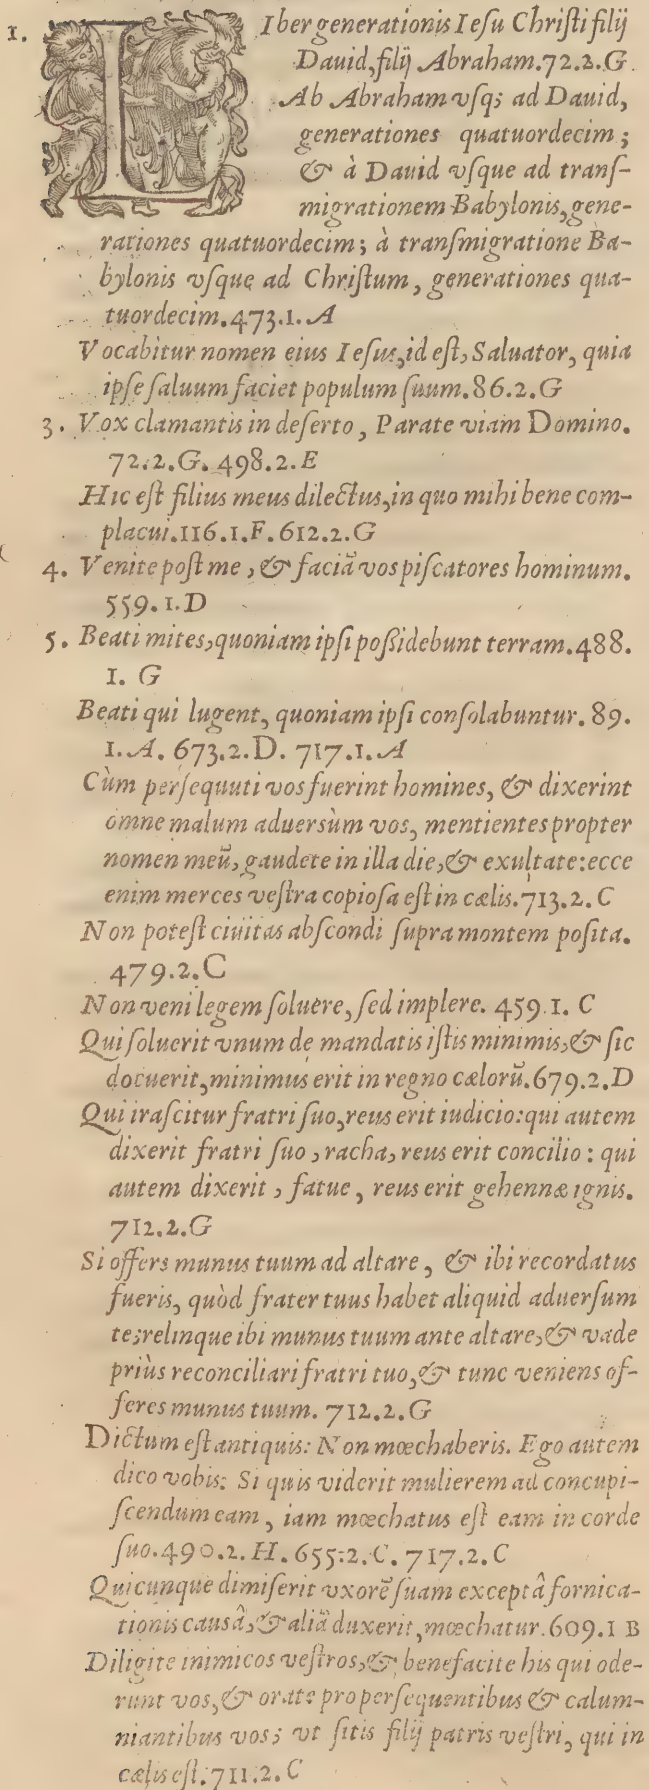 1. LIber generationis Iesu Christi filij
Dauid, filij Abraham.72.2.G
Ab Abraham vsq; ad Dauid,
generationes quatuordecim;
& à Dauid vsque ad trans-
migrationem Babylonis, gene-
rationes quatuordecim; à transmigratione Ba-
bylonis vsque ad Christum, generationes qua-
tuordecim.473.1.A
Vocabitur nomen eius Iesus, id est, Saluator, quia
ipse saluum faciet populum suum.86.2.G
3. Vox clamantis in deserto, Parate viam Domino.
72.2.G. 498.2.E
Hic est filius meus dilectus, in quo mihi bene com-
placui.116.1.F.612.2.G
4. Venite post me, & faciā vos piscatores hominum.
559.1.D
5. Beati mites, quoniam ipsi possidebunt terram.488.
1. G
Beati qui lugent, quoniam ipsi consolabuntur. 89.
1.A. 673.2.D. 717.1.A
Cùm persequuti vos fuerint homines, & dixerint
omne malum aduersùm vos, mentientes propter
nomen meū, gaudete in illa die, & exultate: ecce
enim merces vestra copiosa est in cælis.713.2.C
Non potest ciuitas abscondi supra montem posita.
479.2.C
Non veni legem soluere, sed implere. 459.1. C
Qui soluerit vnum de mandatis istis minimis, & sic
docuerit, minimus erit in regno cælorū.679.2.D
Qui irascitur fratri suo, reus erit iudicio: qui autem
dixerit fratri suo, racha, reus erit concilio: qui
autem dixerit, fatue, reus erit gehennæ ignis.
712.2.G
Si offers munus tuum ad altare, & ibi recordatus
fueris, quòd frater tuus habet aliquid aduersum
te; relinque ibi munus tuum ante altare, & vade
priùs reconciliari fratri tuo, & tunc veniens of-
feres munus tuum. 712.2.G
Dictum est antiquis: Non mœchaberis. Ego autem
dico vobis: Si quis viderit mulierem ad concupi-
scendum eam, iam mœchatus est eam in corde
suo.490.2.H. 655.2.C. 717.2.C
Quicunque dimiserit vxorē suam exceptâ fornica-
tionis causâ, & aliā duxerit, mœchatur.609.1 B
Diligite inimicos vestros, & benefacite his qui ode-
runt vos, & orate pro persequentibus & calum-
niantibus vos; vt sitis filij patris vestri, qui in
cælis est.711.2.C